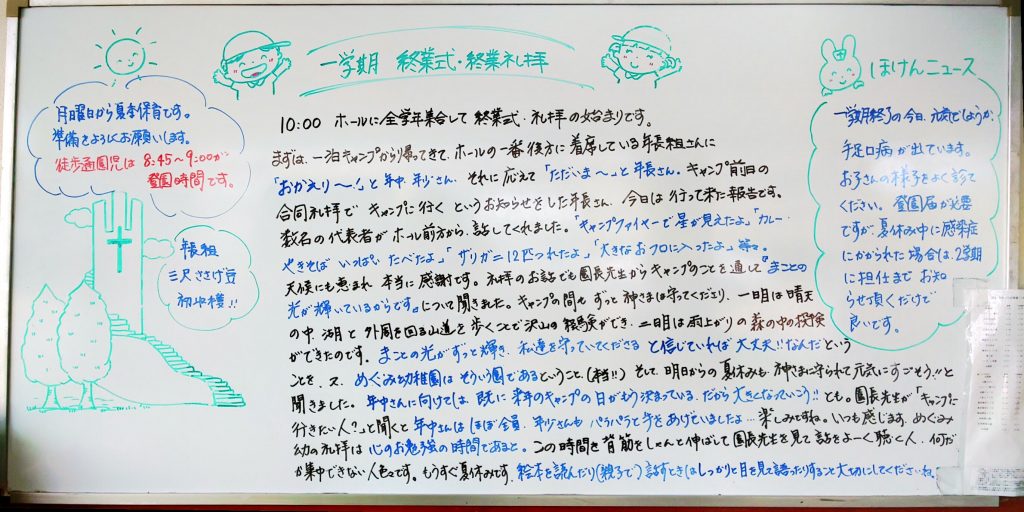 一学期 終業式・終業礼拝
月曜日から夏季保育です。
準備をよろしくお願いします。
徒歩通園児は 8:45〜9:00が
登園時間です。
年長組
三尺ささげ豆
初収穫!!
ほけんニュース
一学期終了の今日、元気でしょうか。
手足口病が出ています。
お子さんの様子をよく診て
ください。登園届が必要
ですが、夏休み中に感染症
にかかられた場合は、2学期
に担任までお知
らせ頂くだけで
良いです。
10:00 ホールに全学年集合して 終業式・礼拝の始まりです。
まずは、一泊キャンプから帰ってきて、ホールの一番後方に着席している年長組さんに
「おかえり〜!」と年中・年少さん、それに応えて「ただいま〜」と年長さん。キャンプ前日の
合同礼拝で キャンプに行く というお知らせをした年長さん、今日は行って来た報告です。
数名の代表者がホール前方から、話してくれました。「キャンプファイヤーで星が見えたよ」「カレー・
やきそば いっぱいたべたよ」「ザリガニ12匹つれたよ」「大きなおフロに入ったよ」等々。
天候にも恵まれ 本当に感謝です。礼拝のお話でも園長先生からキャンプのことを通して『まことの
光が輝いているからです』について聞きました。キャンプの間もずっと神さまは守ってくださり、一日は晴天
の中、湖と外周を回る山道を歩くことで沢山の経験ができ、二日は雨上がりの森の中の探検
ができたのです。まことの光がずっと輝き、私達を守っていてくださる と信じていれば大丈夫!!なんだという
ことを、又、めぐみ幼稚園はそういう園であるということ、(本当!!) そして、明日からの夏休みも、神さまに守られて元気にすごそう!!と
聞きました。年中さんに向けては、既に来年のキャンプの日がもう決まっている、だから大きくなっていこう!!とも。園長先生が「キャンプに
行きたい人?」と聞くと年中さんはほぼ全員、年少さんもパラパラと手をあげていましたよ…楽しみですね。いつも感じます、めぐみ
幼の礼拝は心のお勉強の時間であると。この時間を背筋をしゃんと伸ばして園長先生を見て話をよーく聴く人、何だ
か集中できない人色々です。もうすぐ夏休みです、絵本を読んだり(親子で)話すときはしっかりと目を見て語ったりすること大切にしてくださいね。